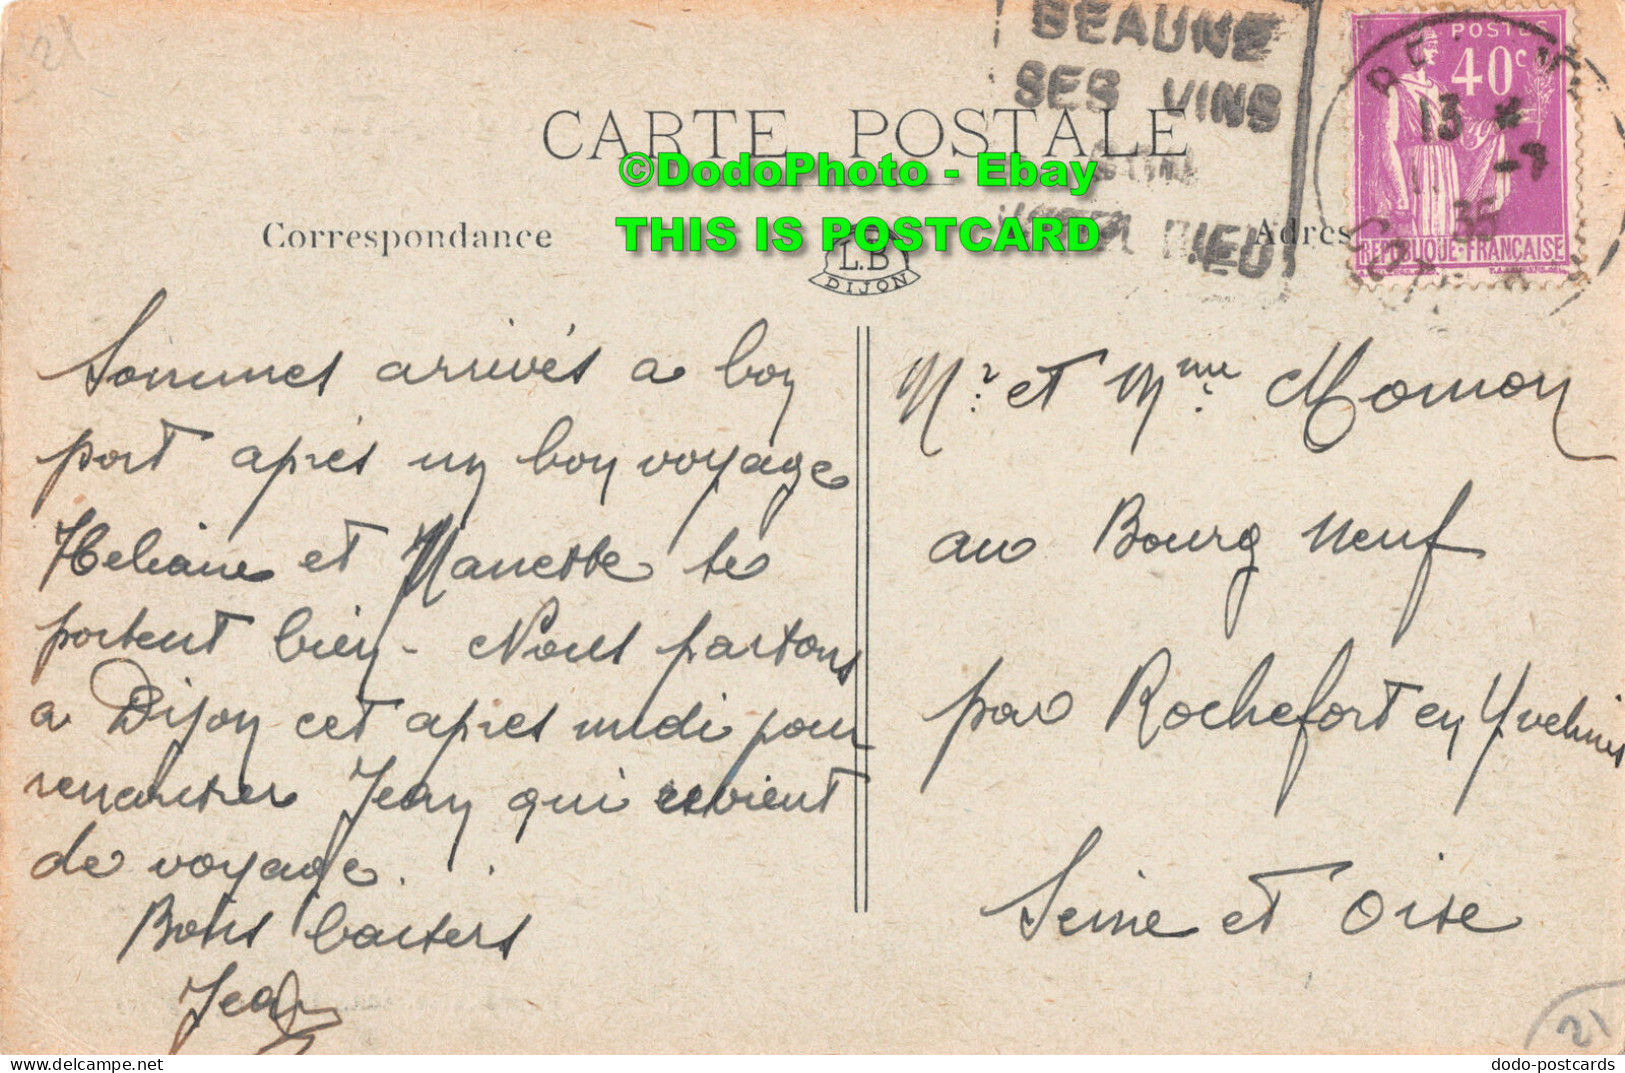 21
BEAUNE
SES VINS
SON
HOTEL DIEU
POSTES
40c
13 *
11 -7
35
REPUBLIQUE-FRANÇAISE
CARTE POSTALE
©DodoPhoto - Ebay
THIS IS POSTCARD
Correspondance
Adres
L.B
DIJON
Sommes arrivés a bon
port après un bon voyage
Heliane et Nanette se
portent bien - Nous partons
a Dijon cet apres midi pour
rencontrer Jean qui revient
de voyage.
Bons baisers
Jean
Mr. et Mme. Momon
au Bourg Neuf
par Rochefort en Yvelines
Seine et Oise
21
dodo-postcards